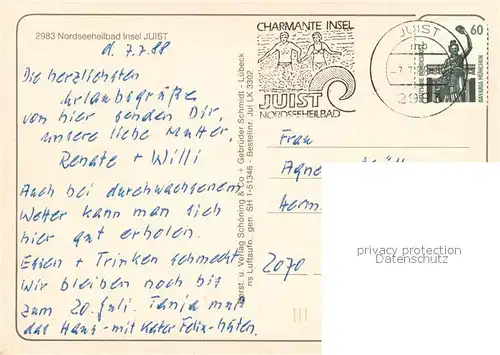 2983 Nordseeheilbad Insel JUIST
d. 7.7.88
Die herzlichsten
Urlaubsgrüße
von hier senden Dir,
unsere liebe Mutter,
Renate + Willi
Auch bei durchwachsenem
Wetter kann man sich
hier gut erholen.
Essen + Trinken schmeckt.
Wir bleiben noch bis
zum 20. Juli. Tanja muß
das Haus - mit Kater Felix - hüten.
Verlag Schöning & Co + Gebrüder Schmidt - Lübeck
Luftaufn. gen. SH 1-51346 - Bestellnr. Jui LK 3302
CHARMANTE INSEL
JUIST
NORDSEEHEILBAD
JUIST
mb
-7.7.88
2983
60
DEUTSCHE BUNDESPOST
BAVARIA MÜNCHEN
Frau
Agne
Herm.
2070
privacy protection
Datenschutz